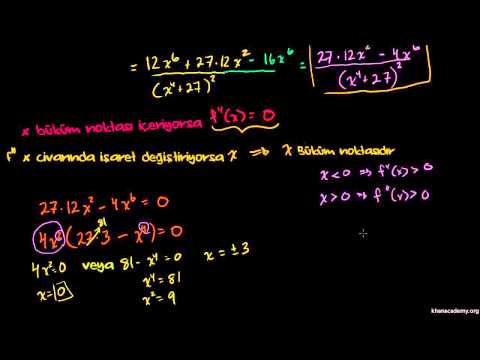 = 12x⁶ + 27·12x² - 16x⁶ / (x⁴+27)² = 27·12x² - 4x⁶ / (x⁴+27)²
x büküm noktası içeriyorsa f"(x) = 0
f" x civarında işaret değiştiriyorsa x ⇒ x Büküm noktasıdır
x<0 ⇒ f"(x)>0
x>0 ⇒ f"(x)>0
27·12x² - 4x⁶ = 0
81
4x²(27·3 - x⁴) = 0
4x²=0 veya 81-x⁴=0 x = ±3
x=0 x⁴=81
x²=9
khanacademy.org